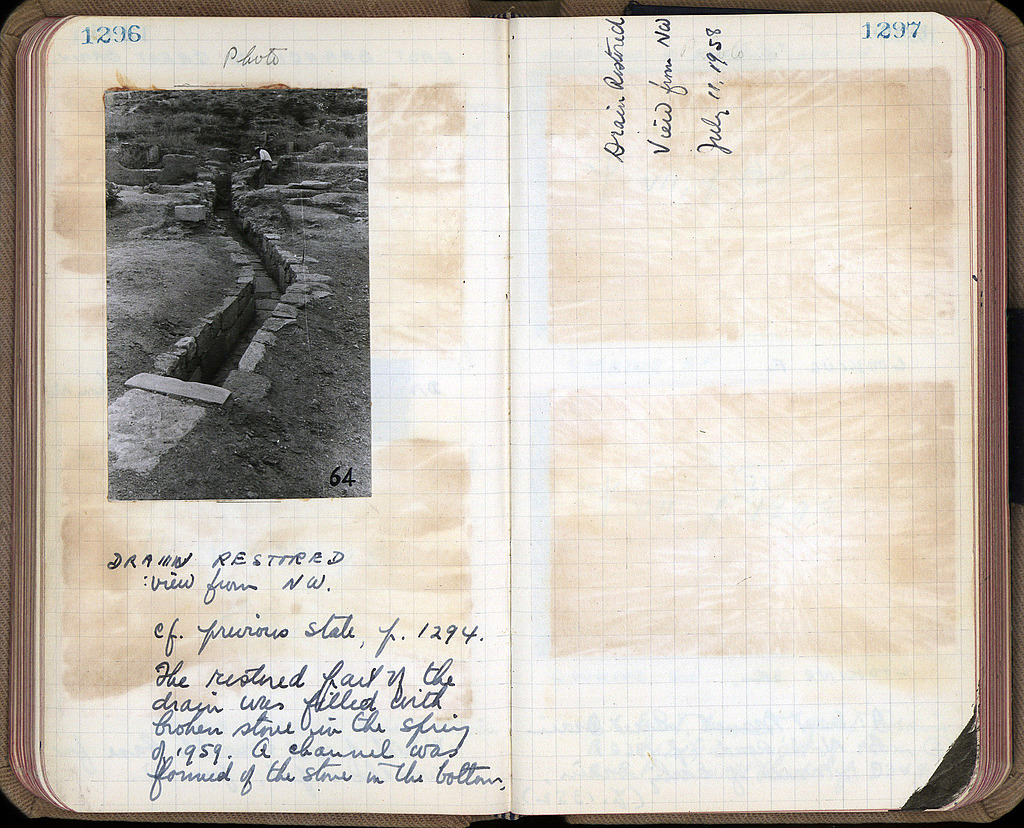 1296
Photo
64
DRAIN RESTORED
: view from NW.
cf. previous state, p. 1294.
The restored part of the
drain was filled with
broken stone in the spring
of 1959. A channel was
formed of the stone in the bottom.
1297
Drain Restored
View from NW
July 11, 1958